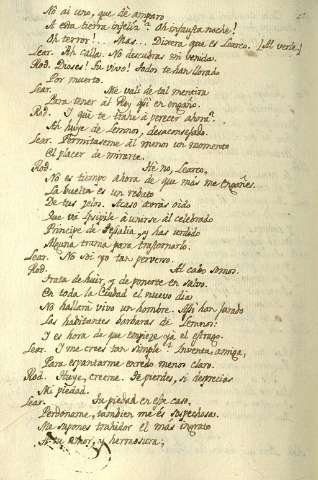 No ai uno, que dè amparo
A esta tierra infeliz? Oh infausta noche!
Oh terror!... Mas... Dioses que es Learco. (Al verle)
Lear. Ah calla. No descubras mi venida.
Rod. Dioses! Tu vivo! Todos te han llorado
Por muerto.
Lear. Me valì de tal mentira
Para tener al Rey assi en engaño.
Rod. I què te trahe à perecer ahora?
Ah huye de Lemnos, desaconsejado.
Lear. Permitaseme al menos un momento
El placer de mirarte.
Rod. Hè no, Learco,
No es tiempo ahora de que mas me engañes.
La buelta es un efeto
De tus zelos. Acaso avràs oido
Que và Ipsipile à unirse al celebrado
Principe de Tesalia, y has urdido
Alguna trama para trastornarlo.
Lear. No soi yo tan perverso.
Rod. Al cabo somos.
Trata de huir, y de ponerte en salvo.
En toda la Ciudad el nuevo dia
No hallarà vivo un hombre. Assi han jurado
Las habitantes barbaras de Lemnos:
I es hora de que empieze ya el estrago.
Lear. I me crees tan simple? Inventa, amiga,
Para espantarme enredo menos claro.
Rod. Huye, creeme. Te pierdes, si desprecias
Mi piedad.
Lear. Tu piedad en esse caso,
Perdoname, tambien me es sospechosa.
Me supones trahidor el mas ingrato
A tu amor, y hermosura;